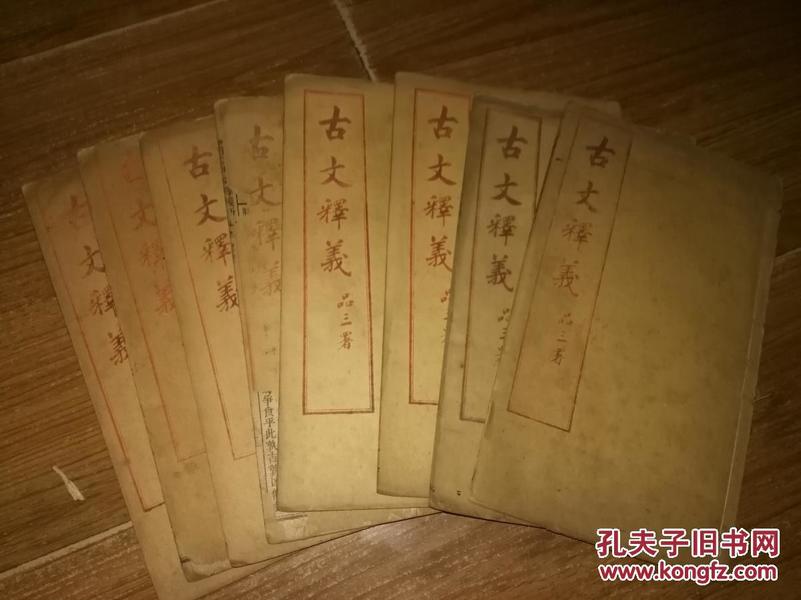 古文釋義
古文釋義
古文釋義
古文釋義
古文釋義
品三署
古文釋義
品三署
古文釋義
品三署
古文釋義
品三署
孔夫子旧书网
www.kongfz.com